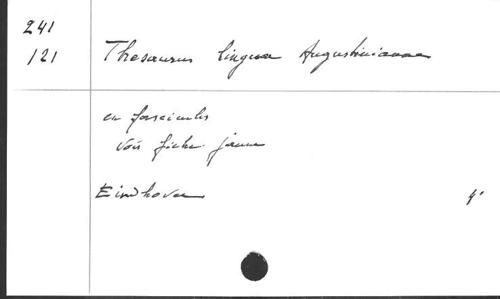 241
121 Thesaurus linguae Augustinianae
en fascicules
voir fiche jaune
Eindhoven 4°